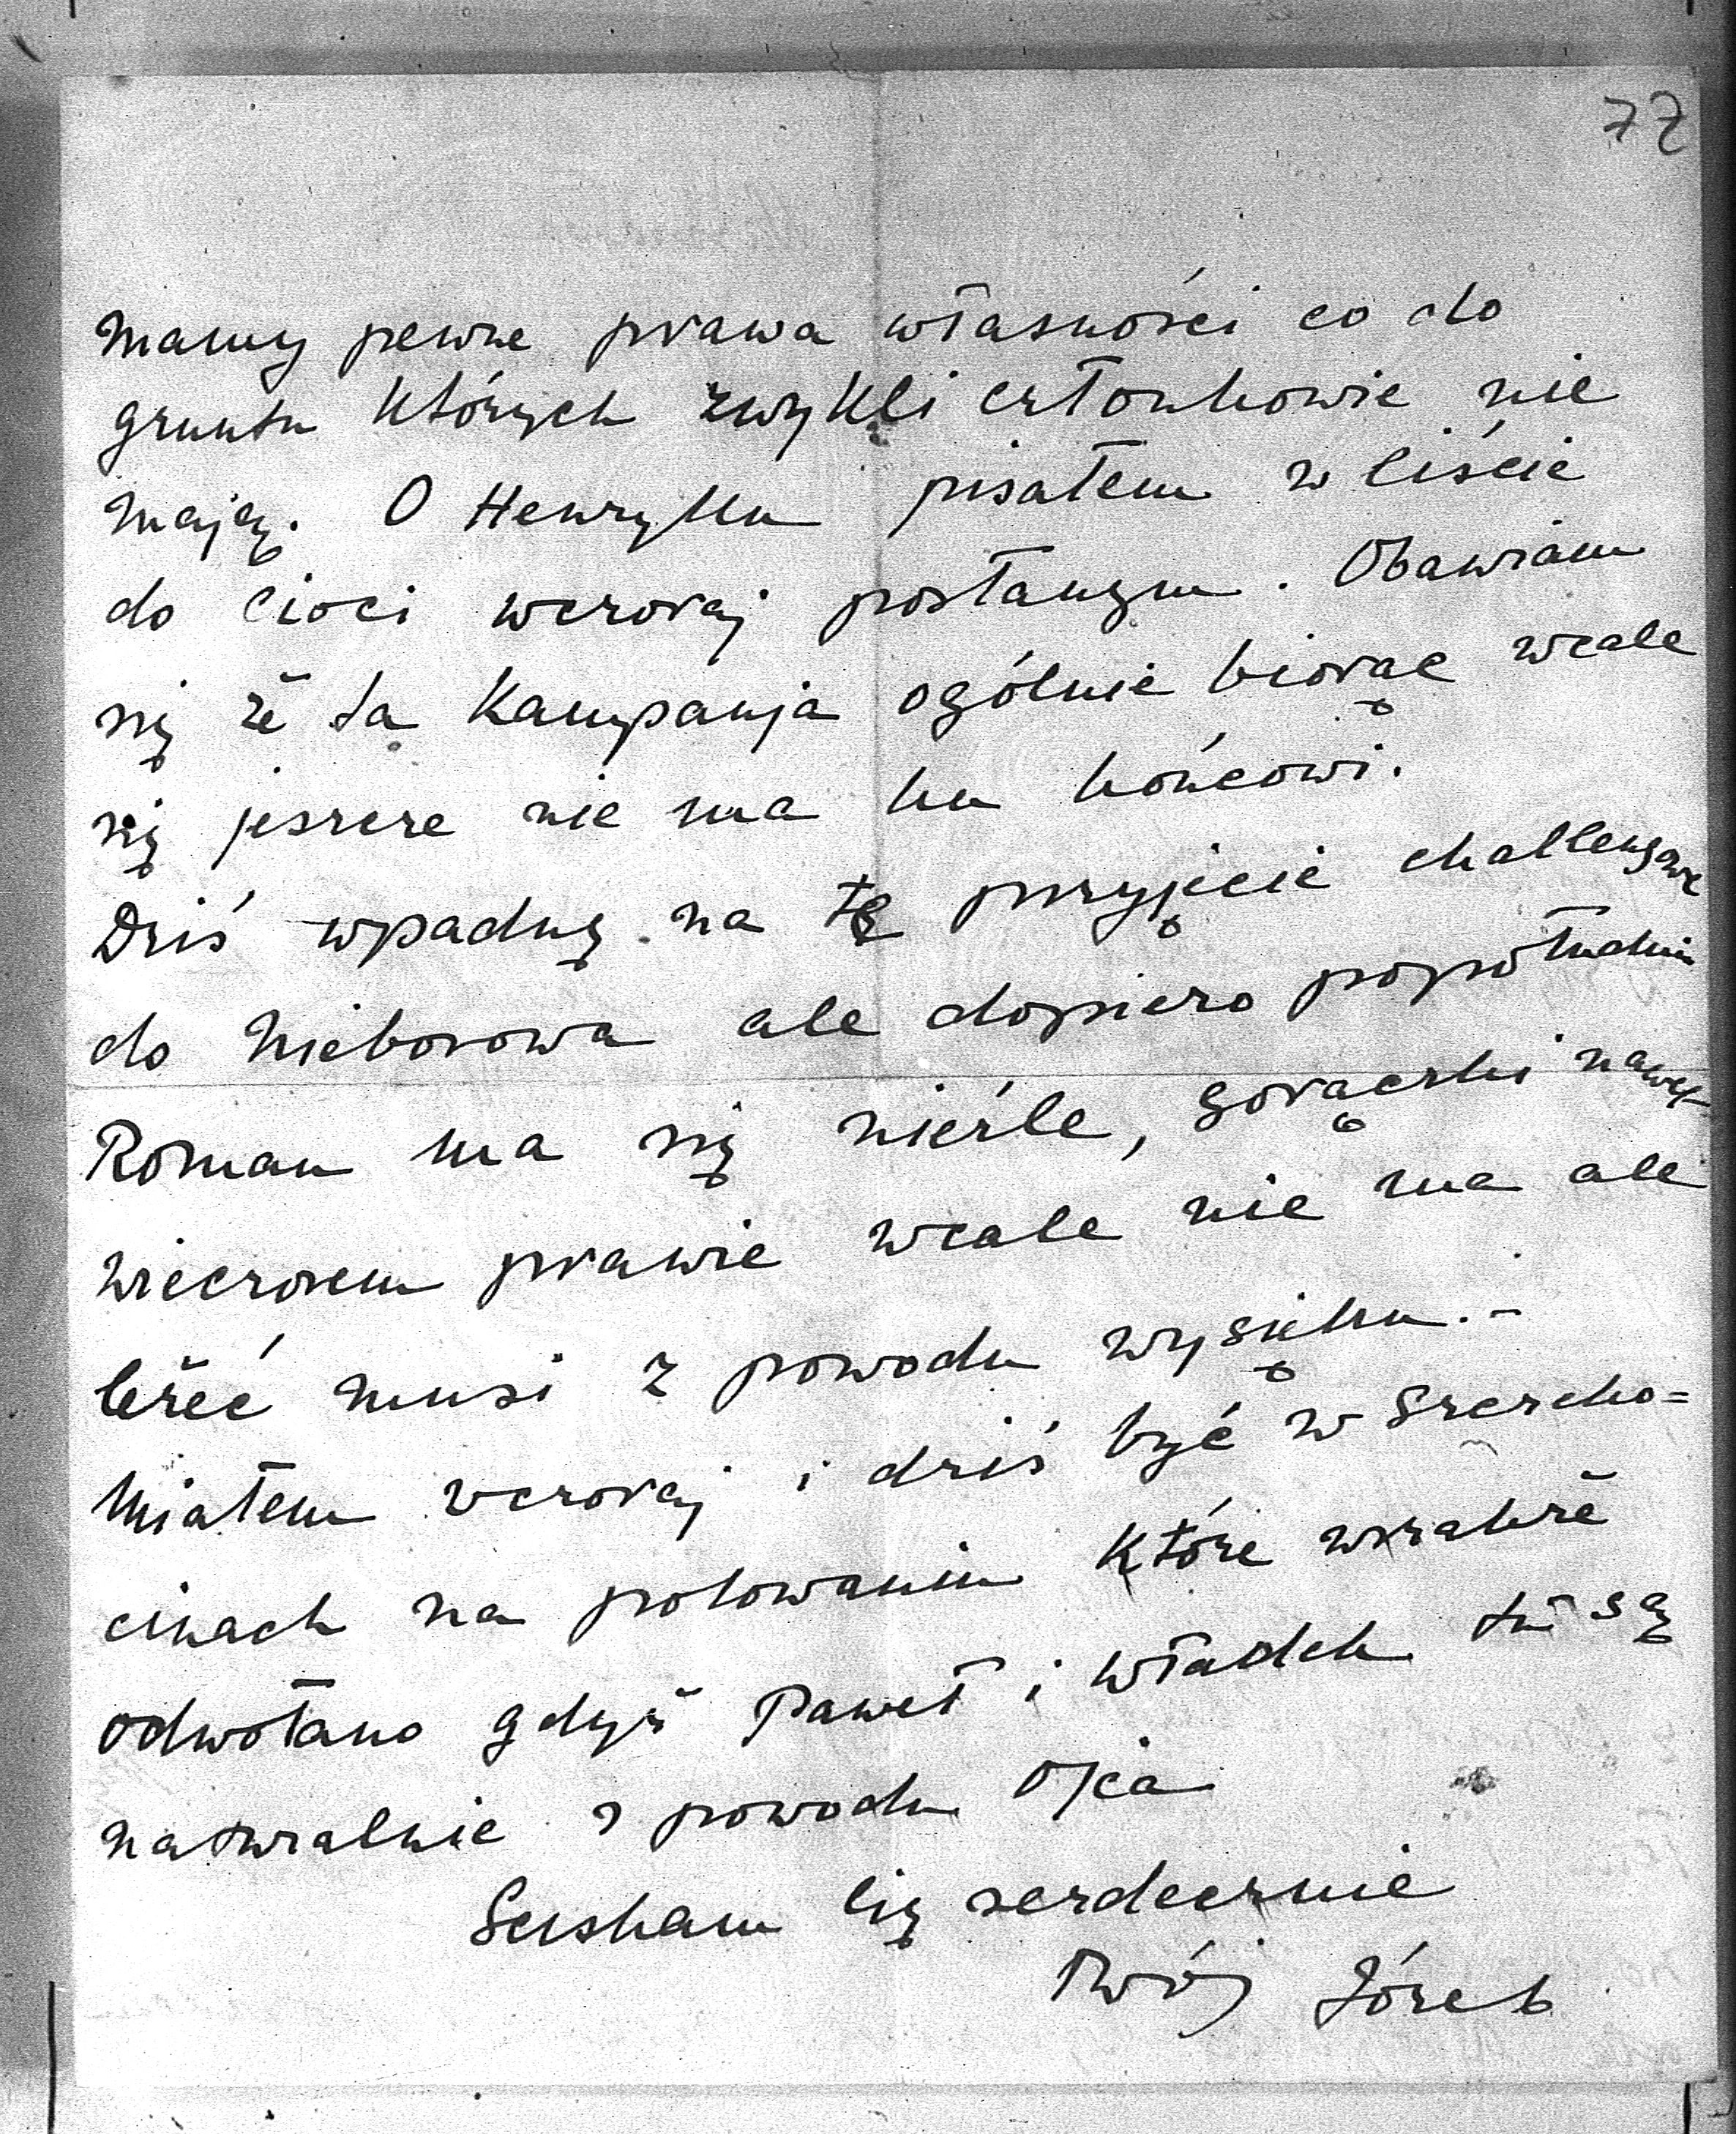 77
mamy pewne prawa własności co do
gruntu których zwykli członkowie nie
mają. O Henryku pisałem w liście
do Cioci wczoraj posłanym. Obawiam
się że ta Kampanja ogólnie biorąc wcale
się jeszcze nie ma ku końcowi.
Dziś wpadnę na tę przyjęcie challengowe
do Nieborowa ale dopiero popołudniu
Roman ma się nieźle, gorączki nawet
wieczorem prawie wcale nie ma ale
leżeć musi z powodu wysięku. -
Miałem wczoraj i dziś być w Szczecho=
cinach na polowaniu które wszakże
odwołano gdyż Paweł i Władek tu są
naturalnie z powodu Ojca
Ściskam Cię serdecznie
Twój Józek